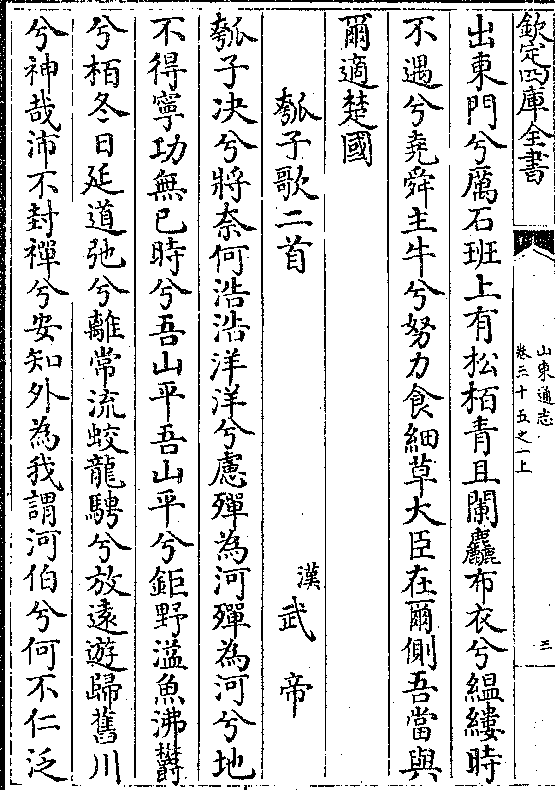 欽定四庫全書
山東通志
卷三十五之一上
三
出東門兮厲石班上有松栢青且闌麤布衣兮緼縷時
不遇兮堯舜主牛兮努力食細草大臣在爾側吾當與
爾適楚國
瓠子歌二首
漢武帝
瓠子决兮將奈何浩浩洋洋兮慮殫為河殫為河兮地
不得寧功無已時兮吾山平吾山平兮鉅野溢魚沸欝
兮栢冬日延道弛兮離常流蛟龍騁兮放遠遊歸舊川
兮神哉沛不封禪兮安知外為我謂河伯兮何不仁泛